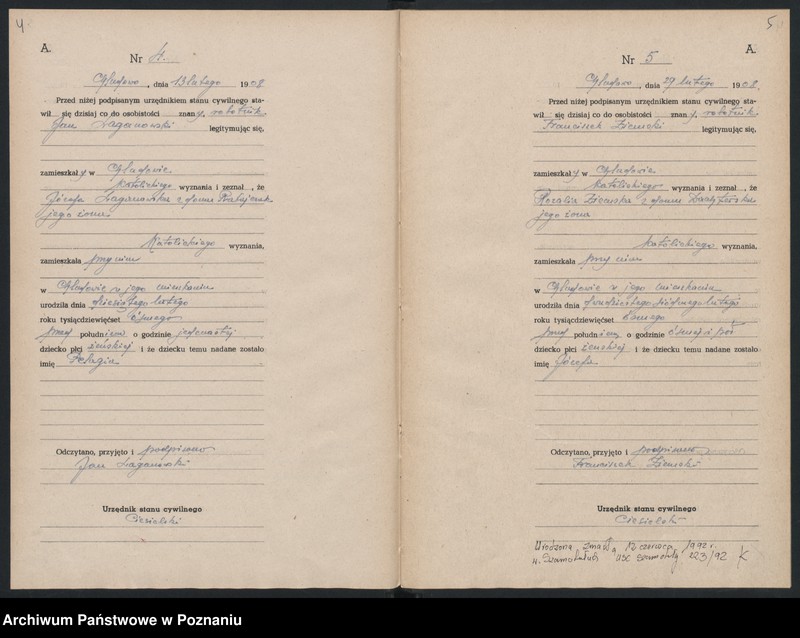 4
A.
Nr 4.
, dnia 13 lutego 1908
Przed niżej podpisanym urzędnikiem stanu cywilnego sta-
wił się dzisiaj co do osobistości znany, robotnik
Jan Łaganowski legitymując się,
zamieszkały w
katolickiego wyznania i zeznał, że
Józefa Łaganowska z domu
jego żona
katolickiego wyznania,
zamieszkała przy nim
w w jego mieszkaniu
urodziła dnia dziesiątego lutego
roku tysiącdziewięćset ósmego
przed południem o godzinie jedenastej
dziecko płci żeńskiej i że dziecku temu nadane zostało
imię Pelagia
Odczytano, przyjęto i podpisano
Jan Łaganowski
Urzędnik stanu cywilnego
Ciesielski
5
A.
Nr 5
, dnia 29 lutego 1908.
Przed niżej podpisanym urzędnikiem stanu cywilnego sta-
wił się dzisiaj co do osobistości znany, robotnik
Franciszek Ziemski legitymując się,
zamieszkały w
katolickiego wyznania i zeznał, że
Rozalia Ziemska z domu
jego żona
katolickiego wyznania,
zamieszkała przy nim
w w jego mieszkaniu
urodziła dnia dwudziestego siódmego lutego
roku tysiącdziewięćset ósmego
przed południem o godzinie ósmej i pół
dziecko płci żeńskiej i że dziecku temu nadane zostało
imię Józefa
Odczytano, przyjęto i podpisano
Franciszek Ziemski
Urzędnik stanu cywilnego
Ciesielski
Urodzona zmarła 12 czerwca 1992 r.
w Szamotułach USC Szamotuły 223/92
Archiwum Państwowe w Poznaniu